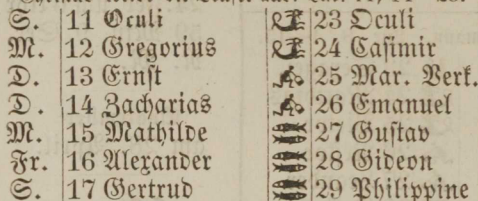 S. 11 Oculi 23 Oculi
M. 12 Gregorius 24 Casimir
D. 13 Ernst 25 Mar. Verk.
D. 14 Zacharias 26 Emanuel
M. 15 Mathilde 27 Gustav
Fr. 16 Alexander 28 Gideon
S. 17 Gertrud 29 Philippine